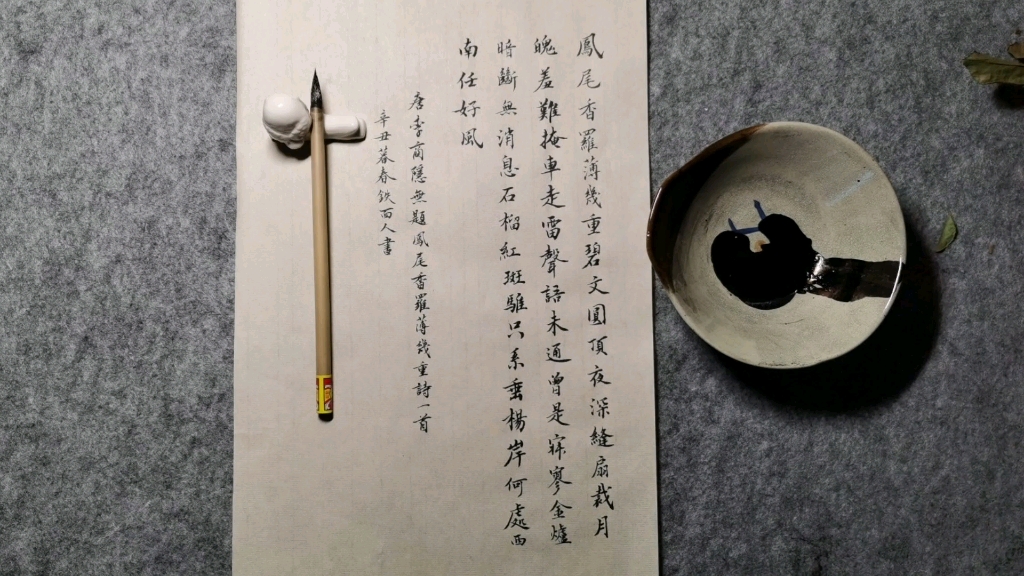 鳳尾香羅薄幾重碧文圓頂夜深縫扇裁月
魄羞難掩車走雷聲語未通曾是寂寥金爐
暗斷無消息石榴紅斑騅只系垂楊岸何處西
南任好風
唐李商隱無題鳳尾香羅薄幾重詩一首
辛丑暮春鉄面人書